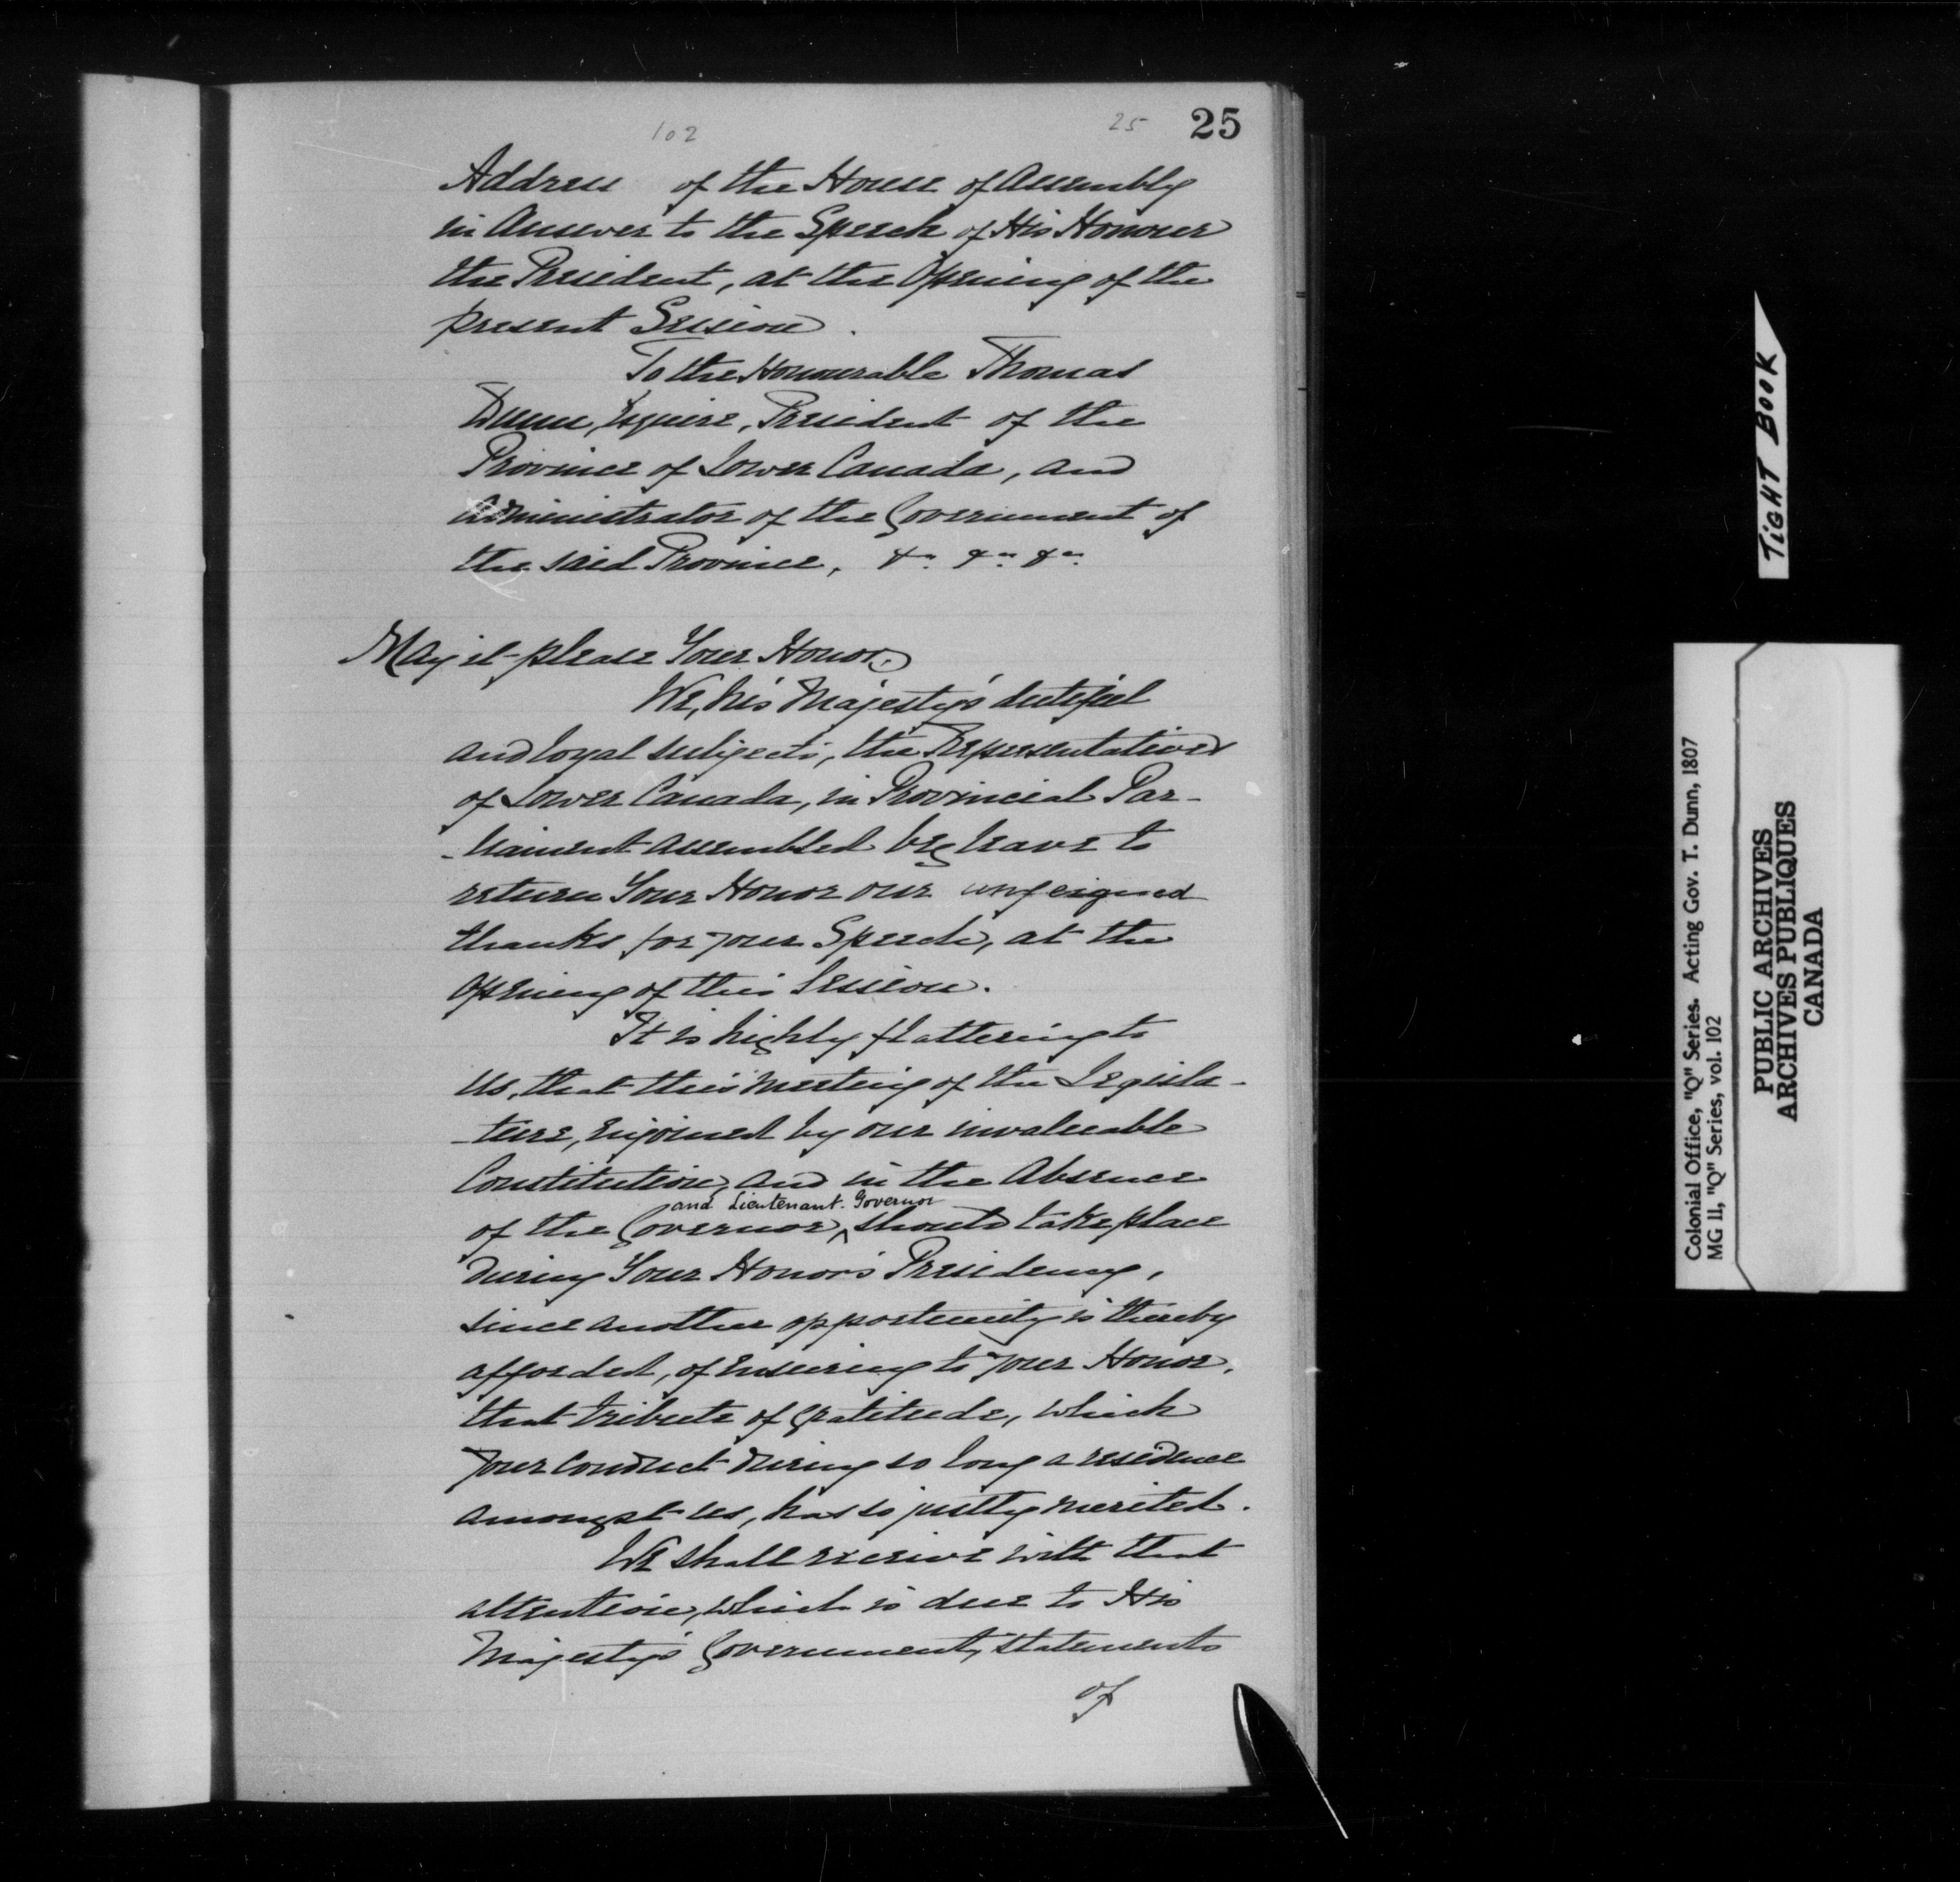 102
25
25
Address of the House of Assembly
in Answer to the Speech of His Honour
the President, at the Opening of the
present Session.
To the Honourable Thomas
Dunn, Esquire, President of the
Province of Lower Canada, and
Administrator of the Government of
the said Province, &c. &c. &c.
May it please Your Honor,
We, his Majesty's dutiful
and loyal subjects, the Representatives
of Lower Canada, in Provincial Par-
-liament assembled beg leave to
return Your Honor our unfeigned
thanks for your Speech, at the
opening of this Session.
It is highly flattering to
us, that this meeting of the Legisla-
-ture, enjoined by our invaluable
Constitution, and in the Absence
and Lieutenant-Governor
of the Governor, ^ should take place
during Your Honor's Presidency,
since another opportunity is thereby
afforded, of ensuring to your Honor,
that tribute of gratitude, which
your conduct during so long a residence
amongst us, has so justly merited.
We shall receive with that
attention, which is due to His
Majesty's Government, statements
of
TIGHT BOOK
Colonial Office, "Q" Series. Acting Gov. T. Dunn, 1807
MG 11, "Q" Series, vol. 102
PUBLIC ARCHIVES
ARCHIVES PUBLIQUES
CANADA